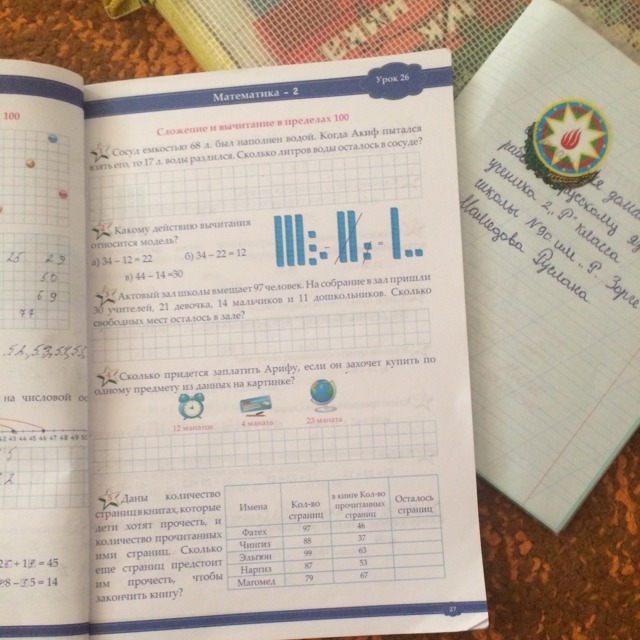 100
Математика - 2
Урок 26
Сложение и вычитание в пределах 100
Сосуд емкостью 68 л. был наполнен водой. Когда Акиф пытался
взять его, то 17 л. воды разлился. Сколько литров воды осталось в сосуде?
Какому действию вычитания
относится модель?
а) 34 − 12 = 22
б) 34 − 22 = 12
в) 44 − 14 =30
Актовый зал школы вмещает 97 человек. На собрание в зал пришли
30 учителей, 21 девочка, 14 мальчиков и 11 дошкольников. Сколько
свободных мест осталось в зале?
Сколько придется заплатить Арифу, если он захочет купить по
одному предмету из данных на картинке?
12 манатов
4 маната
23 маната
Даны количество
страниц в книгах, которые
дети хотят прочесть, и
количество прочитанных
ими страниц. Сколько
еще страниц предстоит
им прочесть, чтобы
закончить книгу?
Имена
Кол-во страниц
в книге Кол-во прочитанных страниц
Осталось страниц
Фатех 97 46
Чингиз 88 37
Эльгюн 99 63
Наргиз 87 53
Магомед 79 67
27
25 29
50
69
77
на числовой ос
42 43 44 45 46 47 48 49 50
= 45
= 14
ученика 2 „Р" класса
школы №90 им. „Р. Зорге
Мамедова Руслана